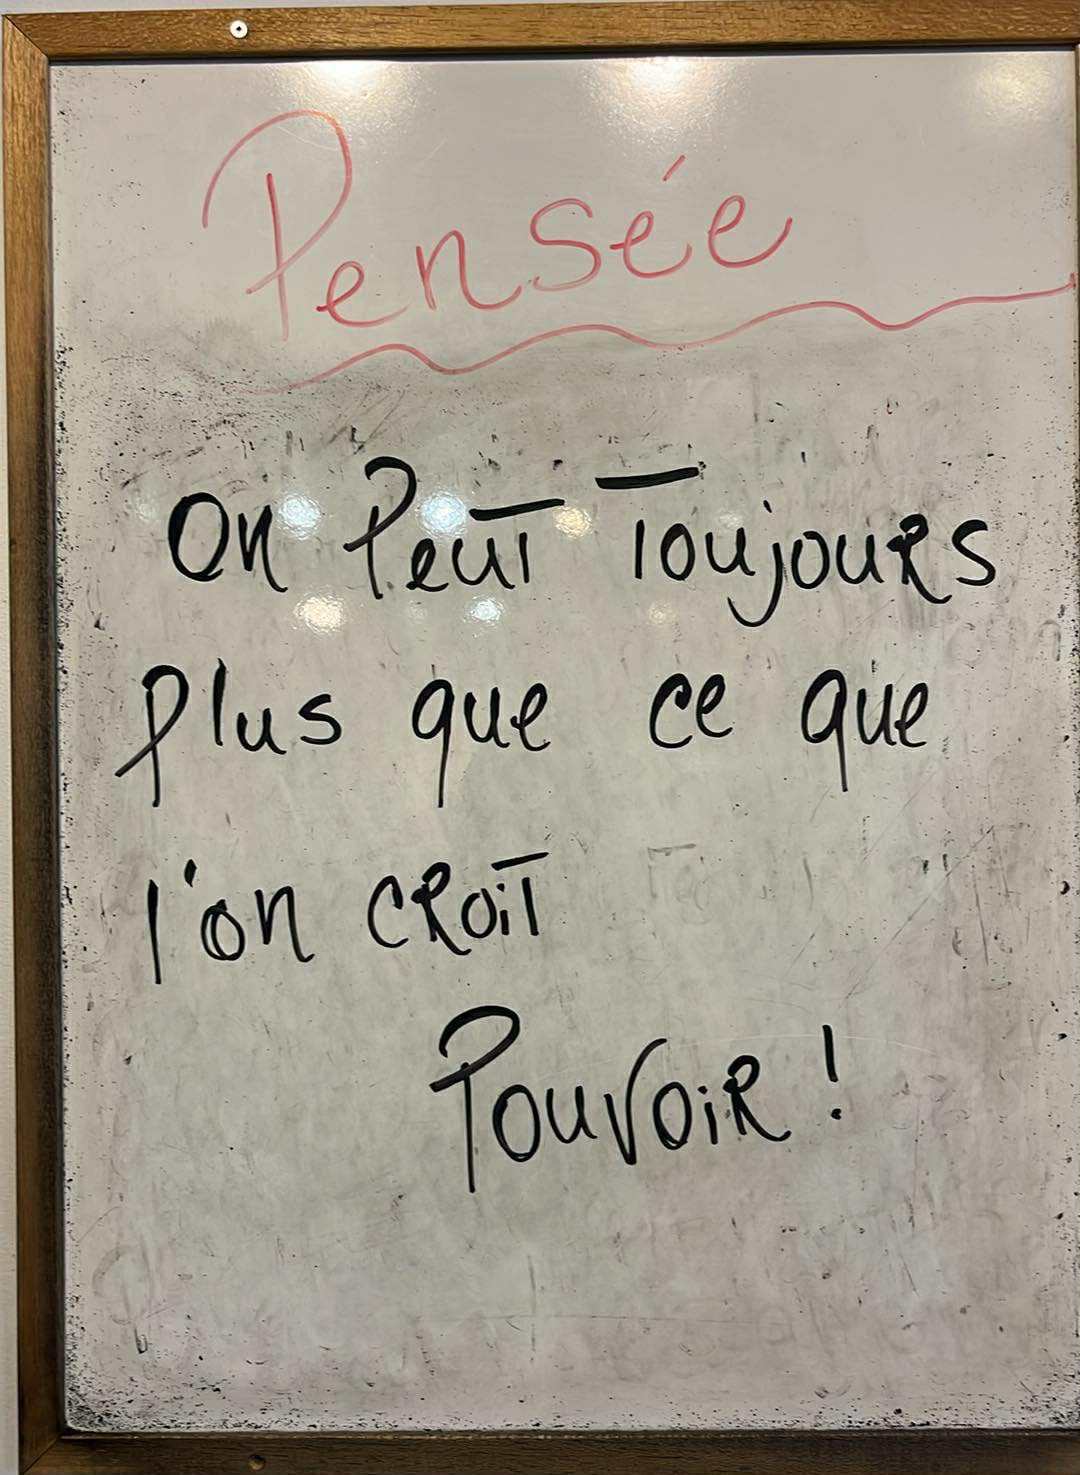 Pensée
On Peut Toujours
plus que ce que
l'on croit
Pouvoir !